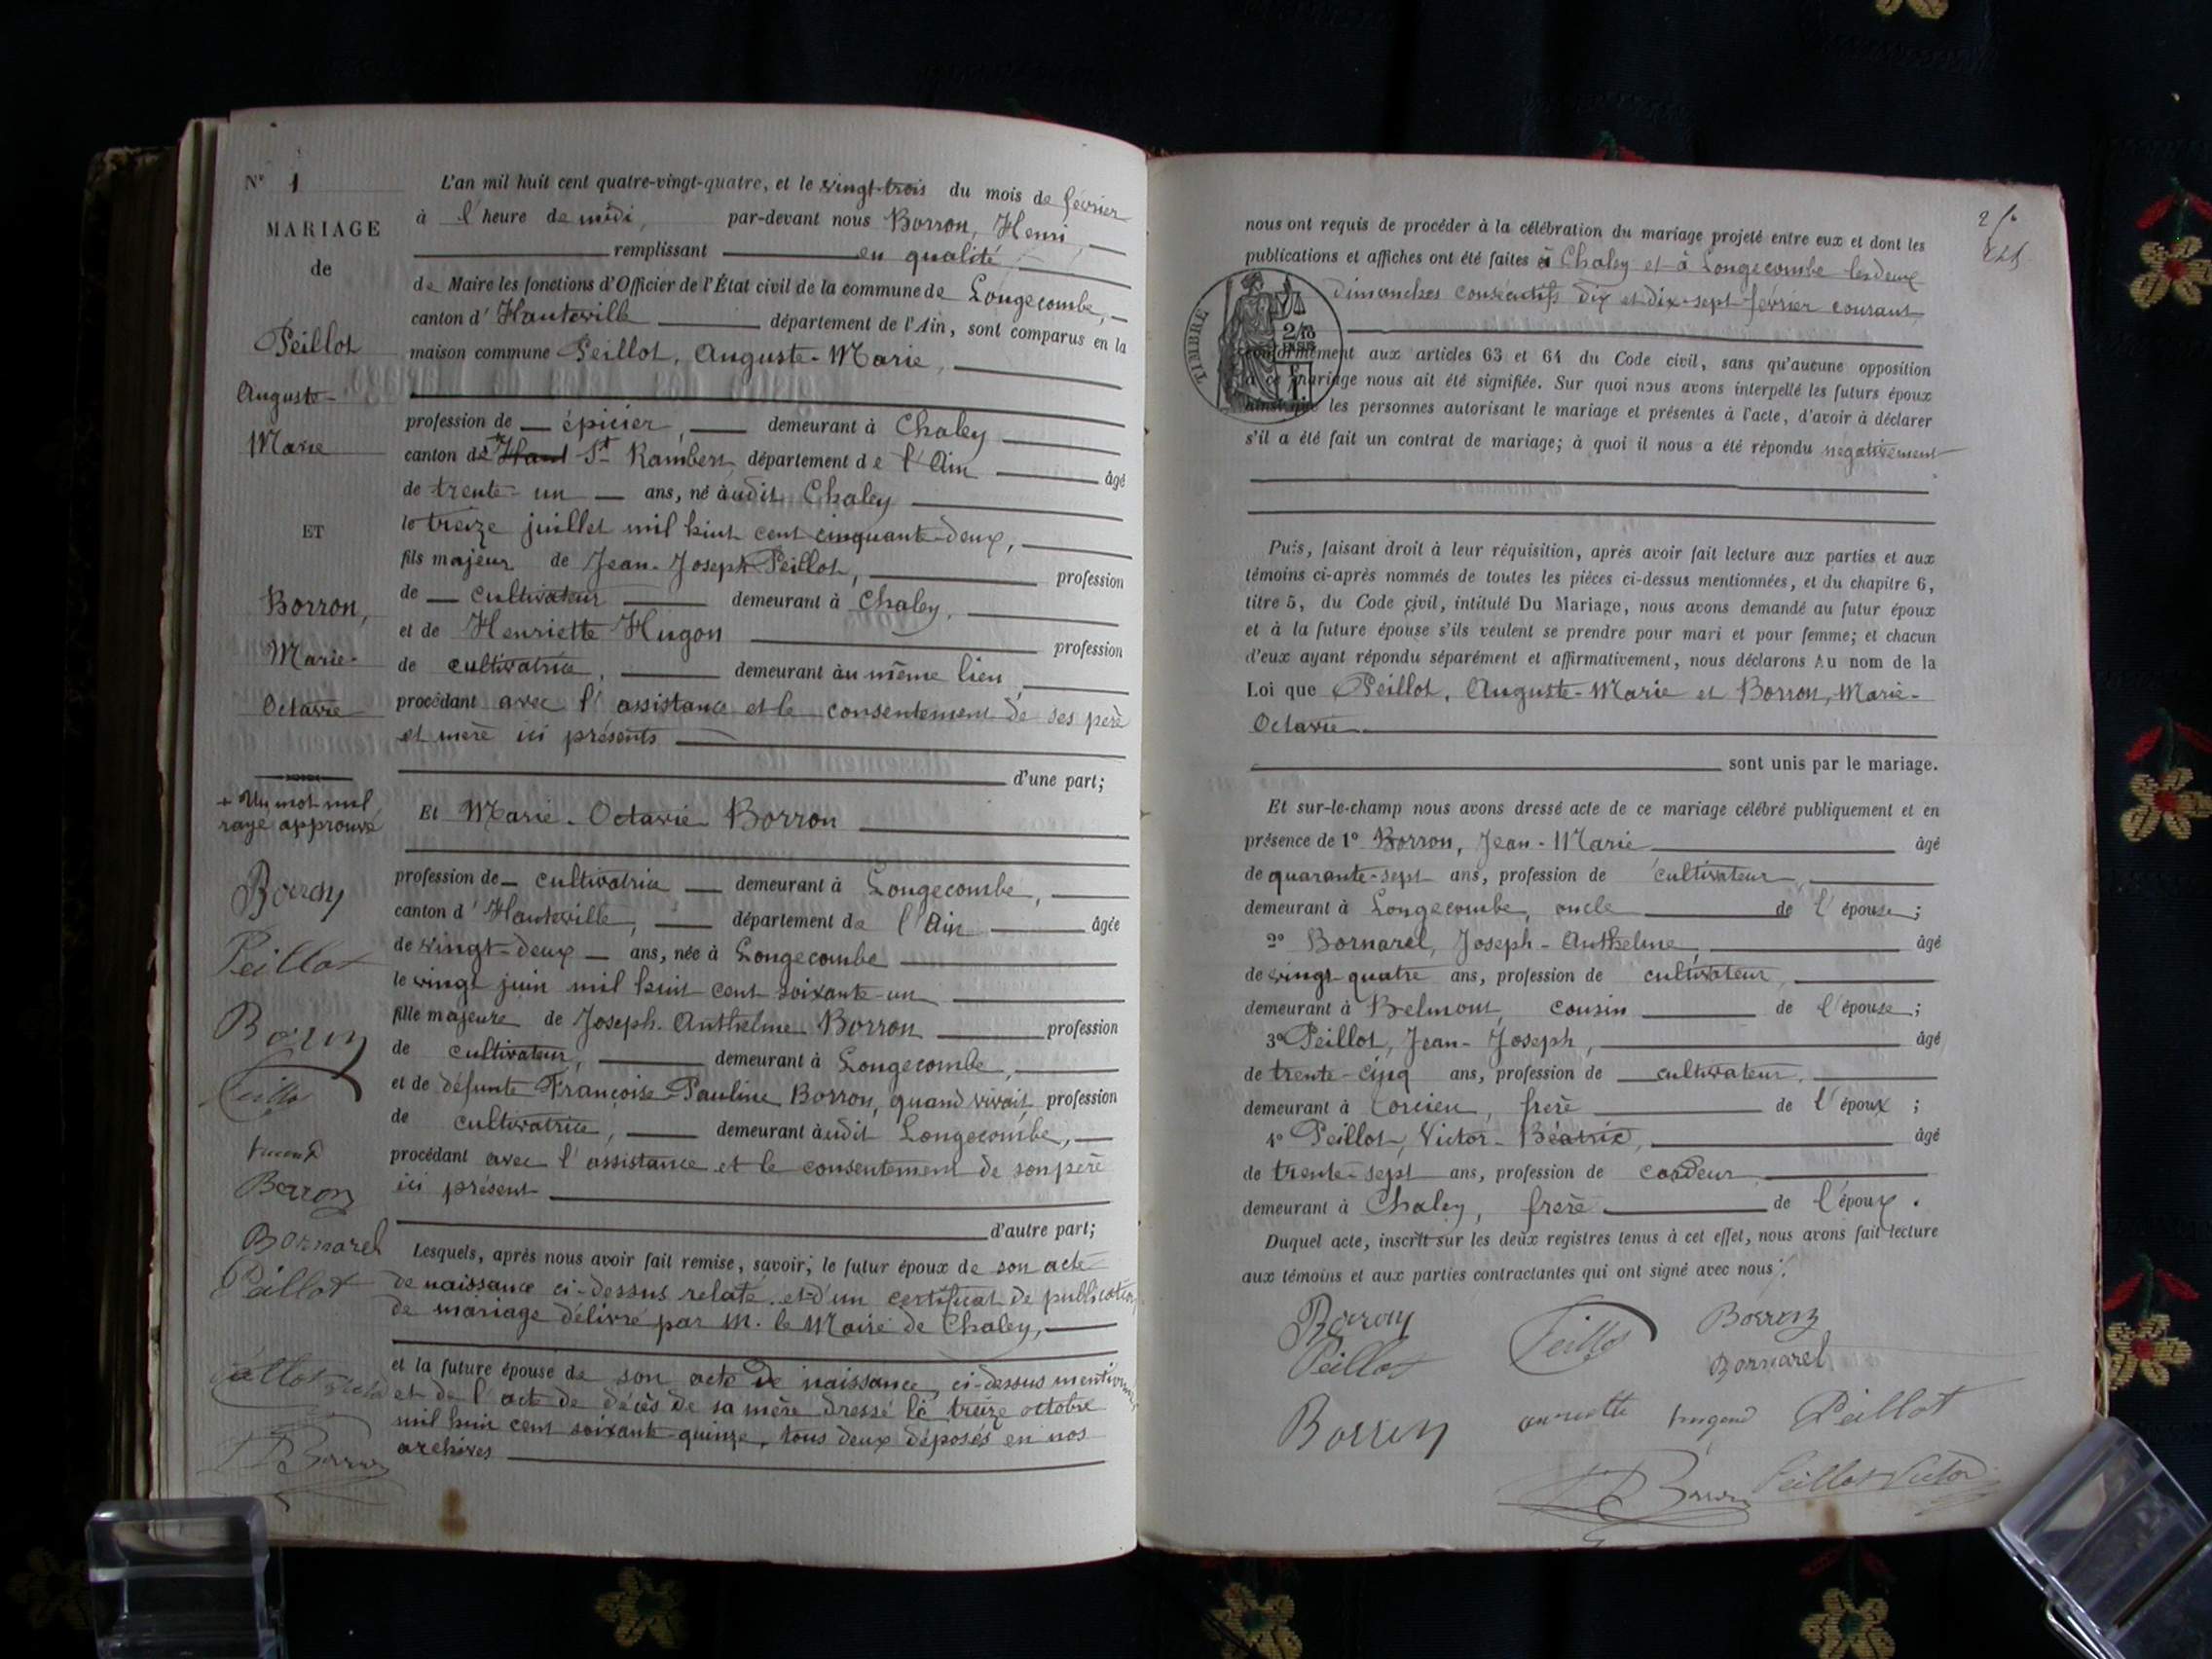 N° 1
MARIAGE
de
Peillot
Auguste-
Marie
ET
Borron,
Marie-
Octavie
+ Un mot nul
rayé approuvé
Borron
Peillot
Borron
Peillot
Borron
Bornarel
Peillot
L'an mil huit cent quatre-vingt-quatre, et le vingt-trois du mois de février
à l'heure de midi, par-devant nous Borron, Henri,
remplissant en qualité
de Maire les fonctions d'Officier de l'État civil de la commune de Longecombe,
canton d'Hauteville département de l'Ain, sont comparus en la
maison commune Peillot, Auguste-Marie,
profession de épicier, demeurant à Chaley
canton de + Haut St Rambert, département de l'Ain âgé
de trente-un ans, né audit Chaley
le treize juillet mil huit cent cinquante-deux,
fils majeur de Jean-Joseph Peillot, profession
de cultivateur demeurant à Chaley,
et de Henriette Hugon profession
de cultivatrice, demeurant au même lieu,
procédant avec l'assistance et le consentement de ses père
et mère ici présents
d'une part;
Et Marie-Octavie Borron
profession de cultivatrice demeurant à Longecombe,
canton d'Hauteville, département de l'Ain âgée
de vingt-deux ans, née à Longecombe
le vingt juin mil huit cent soixante-un
fille majeure de Joseph-Anthelme Borron profession
de cultivateur, demeurant à Longecombe,
et de défunte Françoise-Pauline Borron, quand vivait profession
de cultivatrice, demeurant audit Longecombe,
procédant avec l'assistance et le consentement de son père
ici présent
d'autre part;
Lesquels, après nous avoir fait remise, savoir; le futur époux de son acte
de naissance ci-dessus relaté et d'un certificat de publication
de mariage délivré par M. le Maire de Chaley,
et la future épouse de son acte de naissance, ci-dessus mentionné
et de l'acte de décès de sa mère dressé le treize octobre
mil huit cent soixante-quinze, tous deux déposés en nos
archives
nous ont requis de procéder à la célébration du mariage projeté entre eux et dont les
publications et affiches ont été faites à Chaley et à Longecombe les deux
dimanches consécutifs dix et dix-sept février courant
TIMBRE
conformément aux articles 63 et 64 du Code civil, sans qu'aucune opposition
à ce mariage nous ait été signifiée. Sur quoi nous avons interpellé les futurs époux
ainsi que les personnes autorisant le mariage et présentes à l'acte, d'avoir à déclarer
s'il a été fait un contrat de mariage; à quoi il nous a été répondu négativement
Puis, faisant droit à leur réquisition, après avoir fait lecture aux parties et aux
témoins ci-après nommés de toutes les pièces ci-dessus mentionnées, et du chapitre 6,
titre 5, du Code civil, intitulé Du Mariage, nous avons demandé au futur époux
et à la future épouse s'ils veulent se prendre pour mari et pour femme; et chacun
d'eux ayant répondu séparément et affirmativement, nous déclarons Au nom de la
Loi que Peillot, Auguste-Marie et Borron, Marie-
Octavie
sont unis par le mariage.
Et sur-le-champ nous avons dressé acte de ce mariage célébré publiquement et en
présence de 1° Borron, Jean-Marie âgé
de quarante-sept ans, profession de cultivateur,
demeurant à Longecombe, oncle de l'épouse;
2° Bornarel, Joseph-Anthelme, âgé
de vingt-quatre ans, profession de cultivateur,
demeurant à Belmont, cousin de l'épouse;
3° Peillot, Jean-Joseph, âgé
de trente-cinq ans, profession de cultivateur,
demeurant à Corcieu, frère de l'époux;
4° Peillot, Victor-Béatrix, âgé
de trente-sept ans, profession de cardeur
demeurant à Chaley, frère de l'époux.
Duquel acte, inscrit sur les deux registres tenus à cet effet, nous avons fait lecture
aux témoins et aux parties contractantes qui ont signé avec nous.
Borron Peillot Borron
Peillot Bornarel
Borron hugond Peillot
Borron Peillot Victor